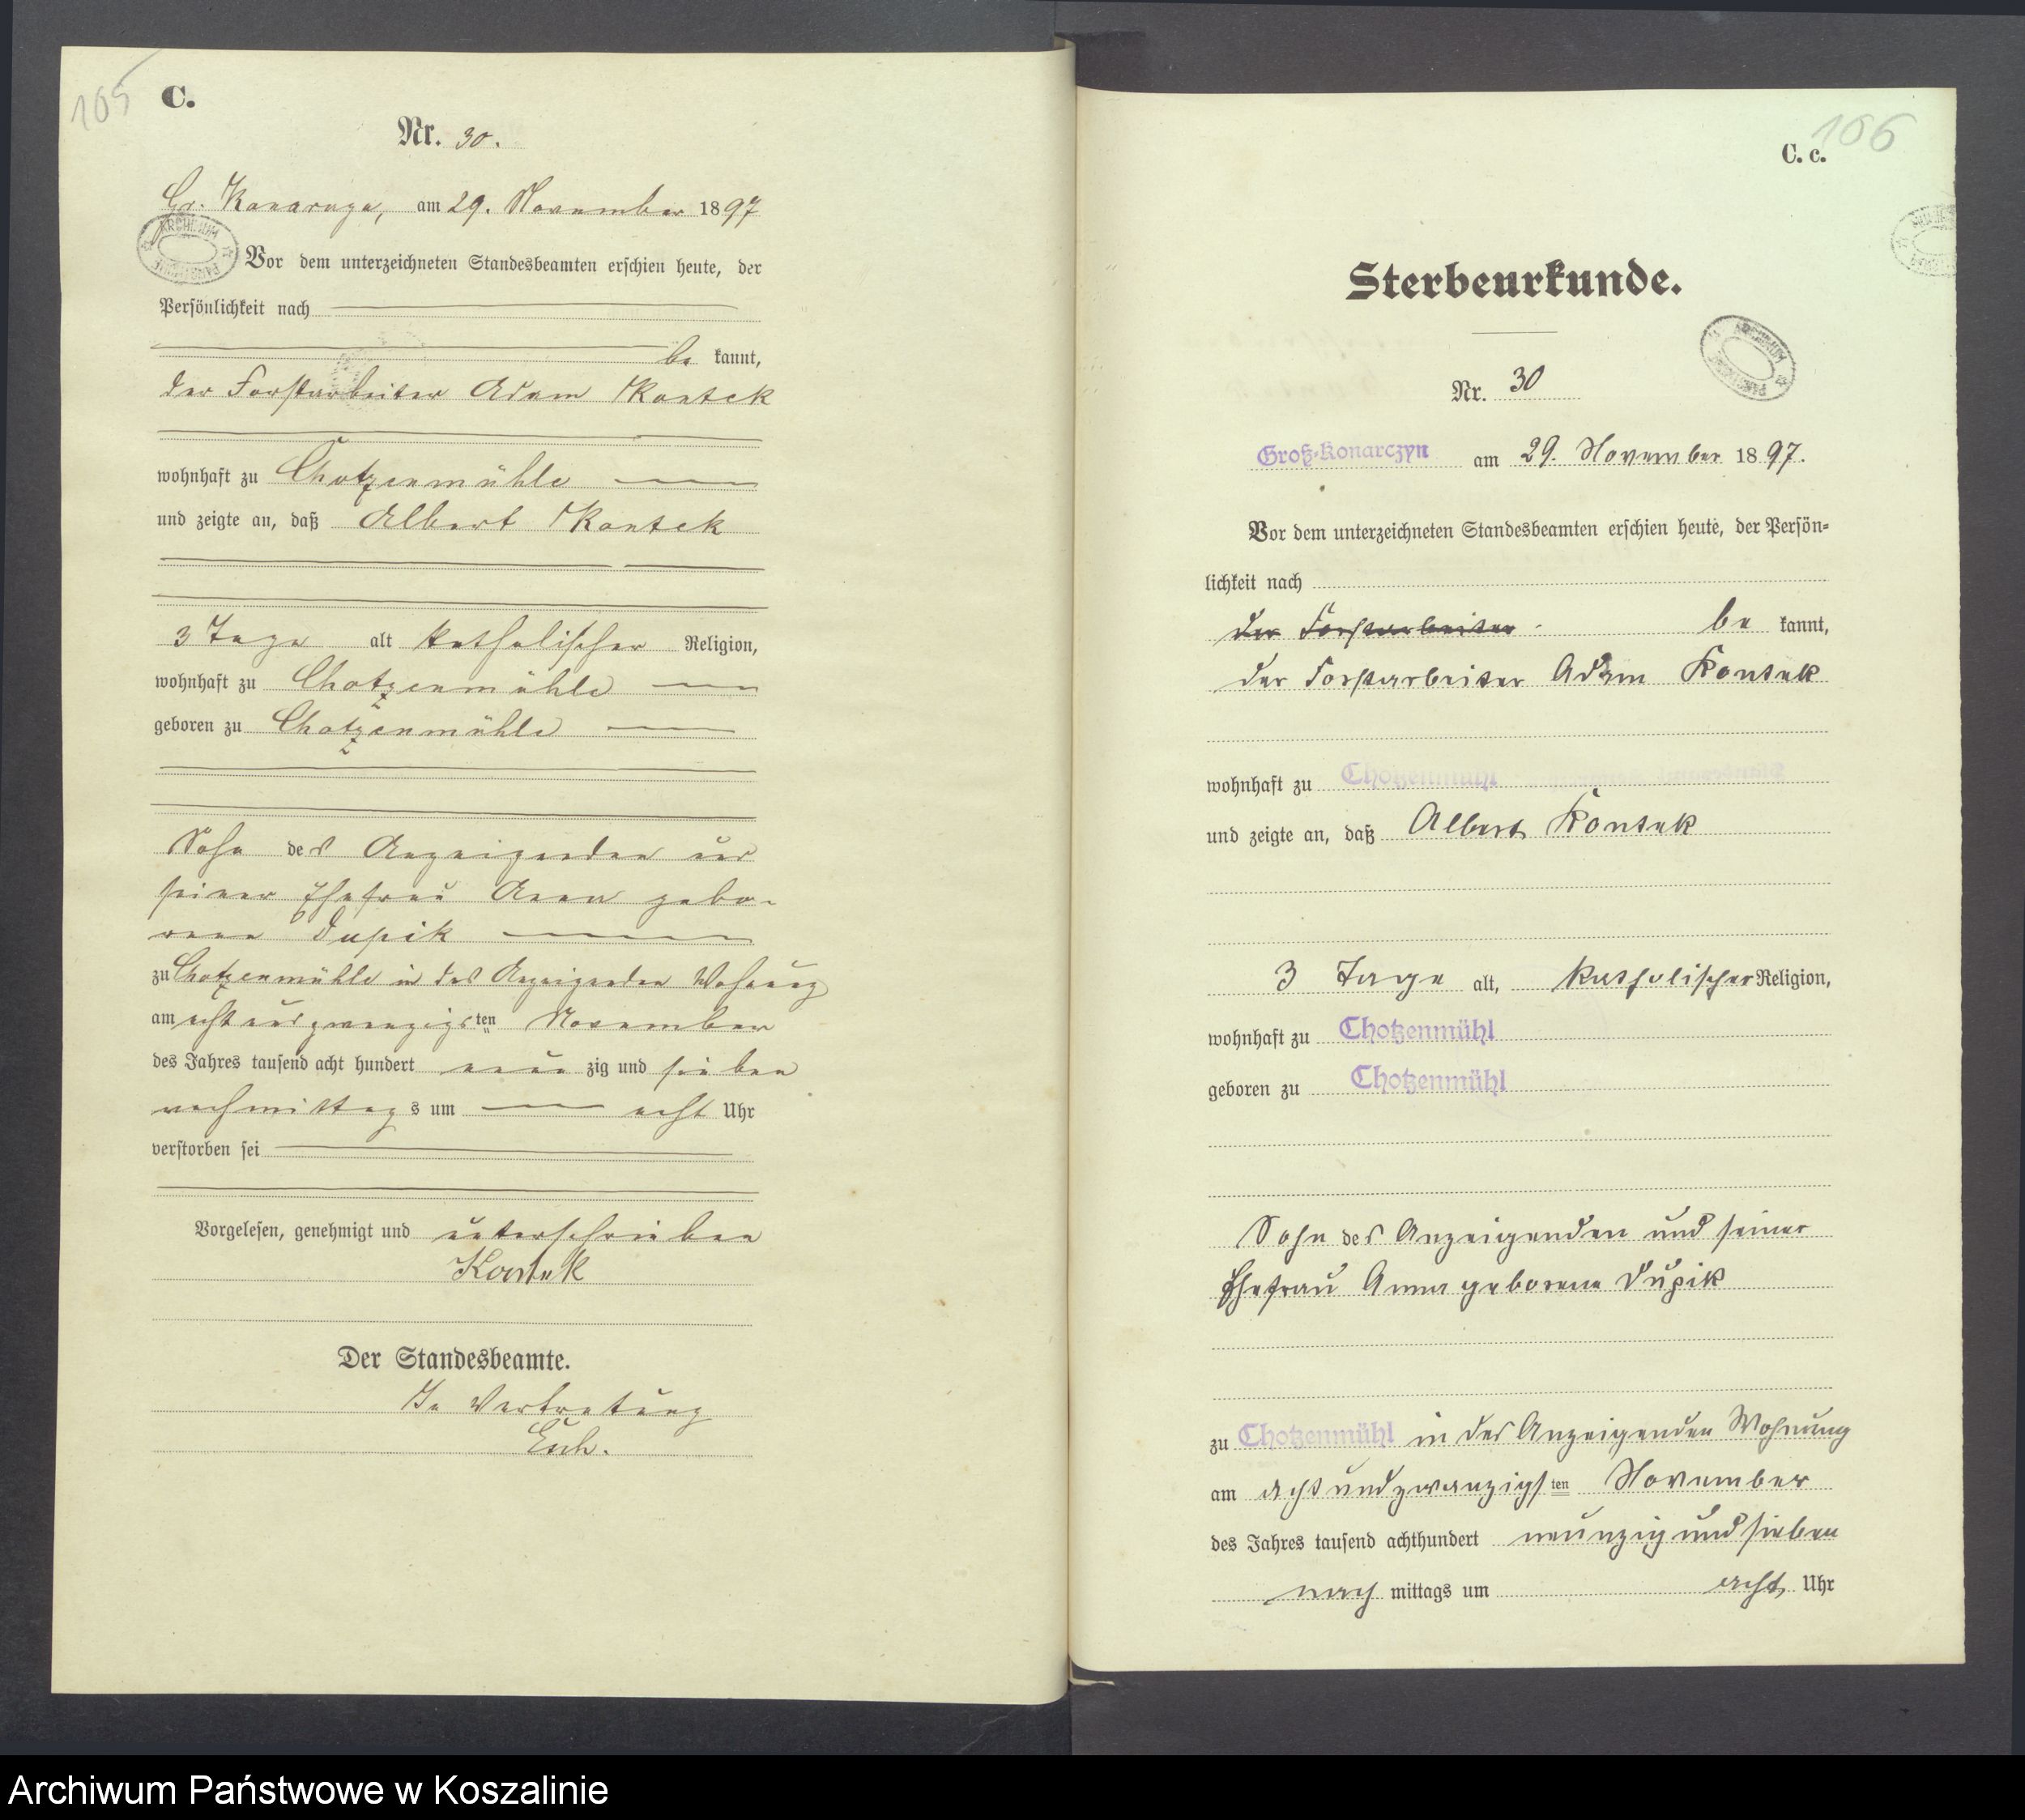 105
C.
Nr. 30.
am 29. November 1897
Vor dem unterzeichneten Standesbeamten erschien heute, der
Persönlichkeit nach
be kannt,
der Forstarbeiter Adam Kontek
wohnhaft zu Chotzenmühle
und zeigte an, daß Albert Kontek
3 Tage alt katholischer Religion,
wohnhaft zu Chotzenmühle
geboren zu Chotzenmühle
Sohn des Anzeigenden und
seiner Ehefrau Anna gebo-
rene Dupik
zu Chotzenmühle in des Anzeigenden Wohnung
am acht und zwanzigsten November
des Jahres tausend acht hundert neun zig und sieben
nachmittags um acht Uhr
verstorben sei
Vorgelesen, genehmigt und unterschrieben
Kontek
Der Standesbeamte.
In Vertretung
106
C. c.
Sterbeurkunde.
Nr. 30
Groß-Konarczyn am 29. November 1897.
Vor dem unterzeichneten Standesbeamten erschien heute, der Persön-
lichkeit nach
der Forstarbeiter be kannt,
der Forstarbeiter Adam Kontek
wohnhaft zu Chotzenmühl
und zeigte an, daß Albert Kontek
3 Tage alt, katholischer Religion,
wohnhaft zu Chotzenmühl
geboren zu Chotzenmühl
Sohn des Anzeigenden und seiner
Ehefrau Anna geborene Dupik
zu Chotzenmühl in des Anzeigenden Wohnung
am acht und zwanzigsten November
des Jahres tausend achthundert neunzig und sieben
nach mittags um acht Uhr
Archiwum Państwowe w Koszalinie